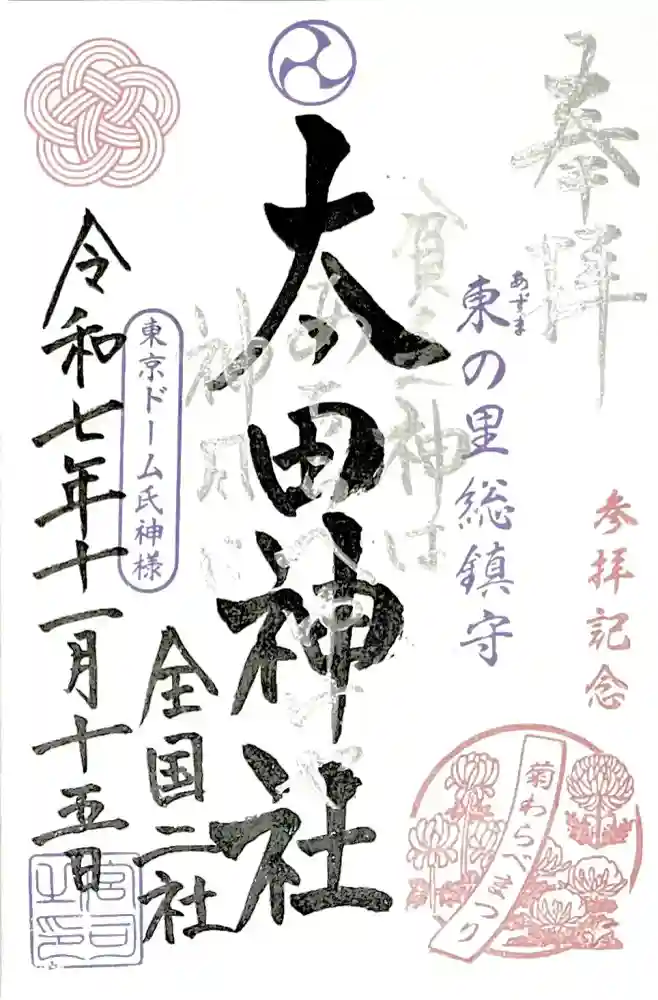 奉拝
参拝記念
東の里総鎮守
あずま
貧乏神は
神
太田神社
東京ドーム氏神様
全国二社
令和七年十一月十五日
菊わらべまつり
宮司之印